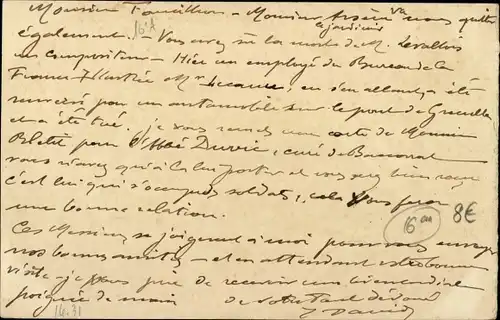 Monsieur Foucillon - Monsieur Arsène va nous quitter
le jardinier
également. - Vous avez su la mort de M. Levallois
un compositeur - Hier un employé du Bureau de la
France Illustrée Mr Lecanu, en s'en allant, a été
renversé par un automobile sur le pont de Grenelle
et a été tué. je vous remets une carte de Monsieur
Bletit pour l'abbé Duvic, curé de
vous n'avez qu'à la lui porter et vous serez bien reçu
c'est lui qui s'occupe soldats, cela vous fera
une bonne relation.
Ces Messieurs se joignent à moi pour vous envoyer
nos bonnes amitiés - et en attendant votre bonne
visite je vous prie de recevoir une bien cordiale
poignée de main de votre tout dévoué
David
16
8€
14.31